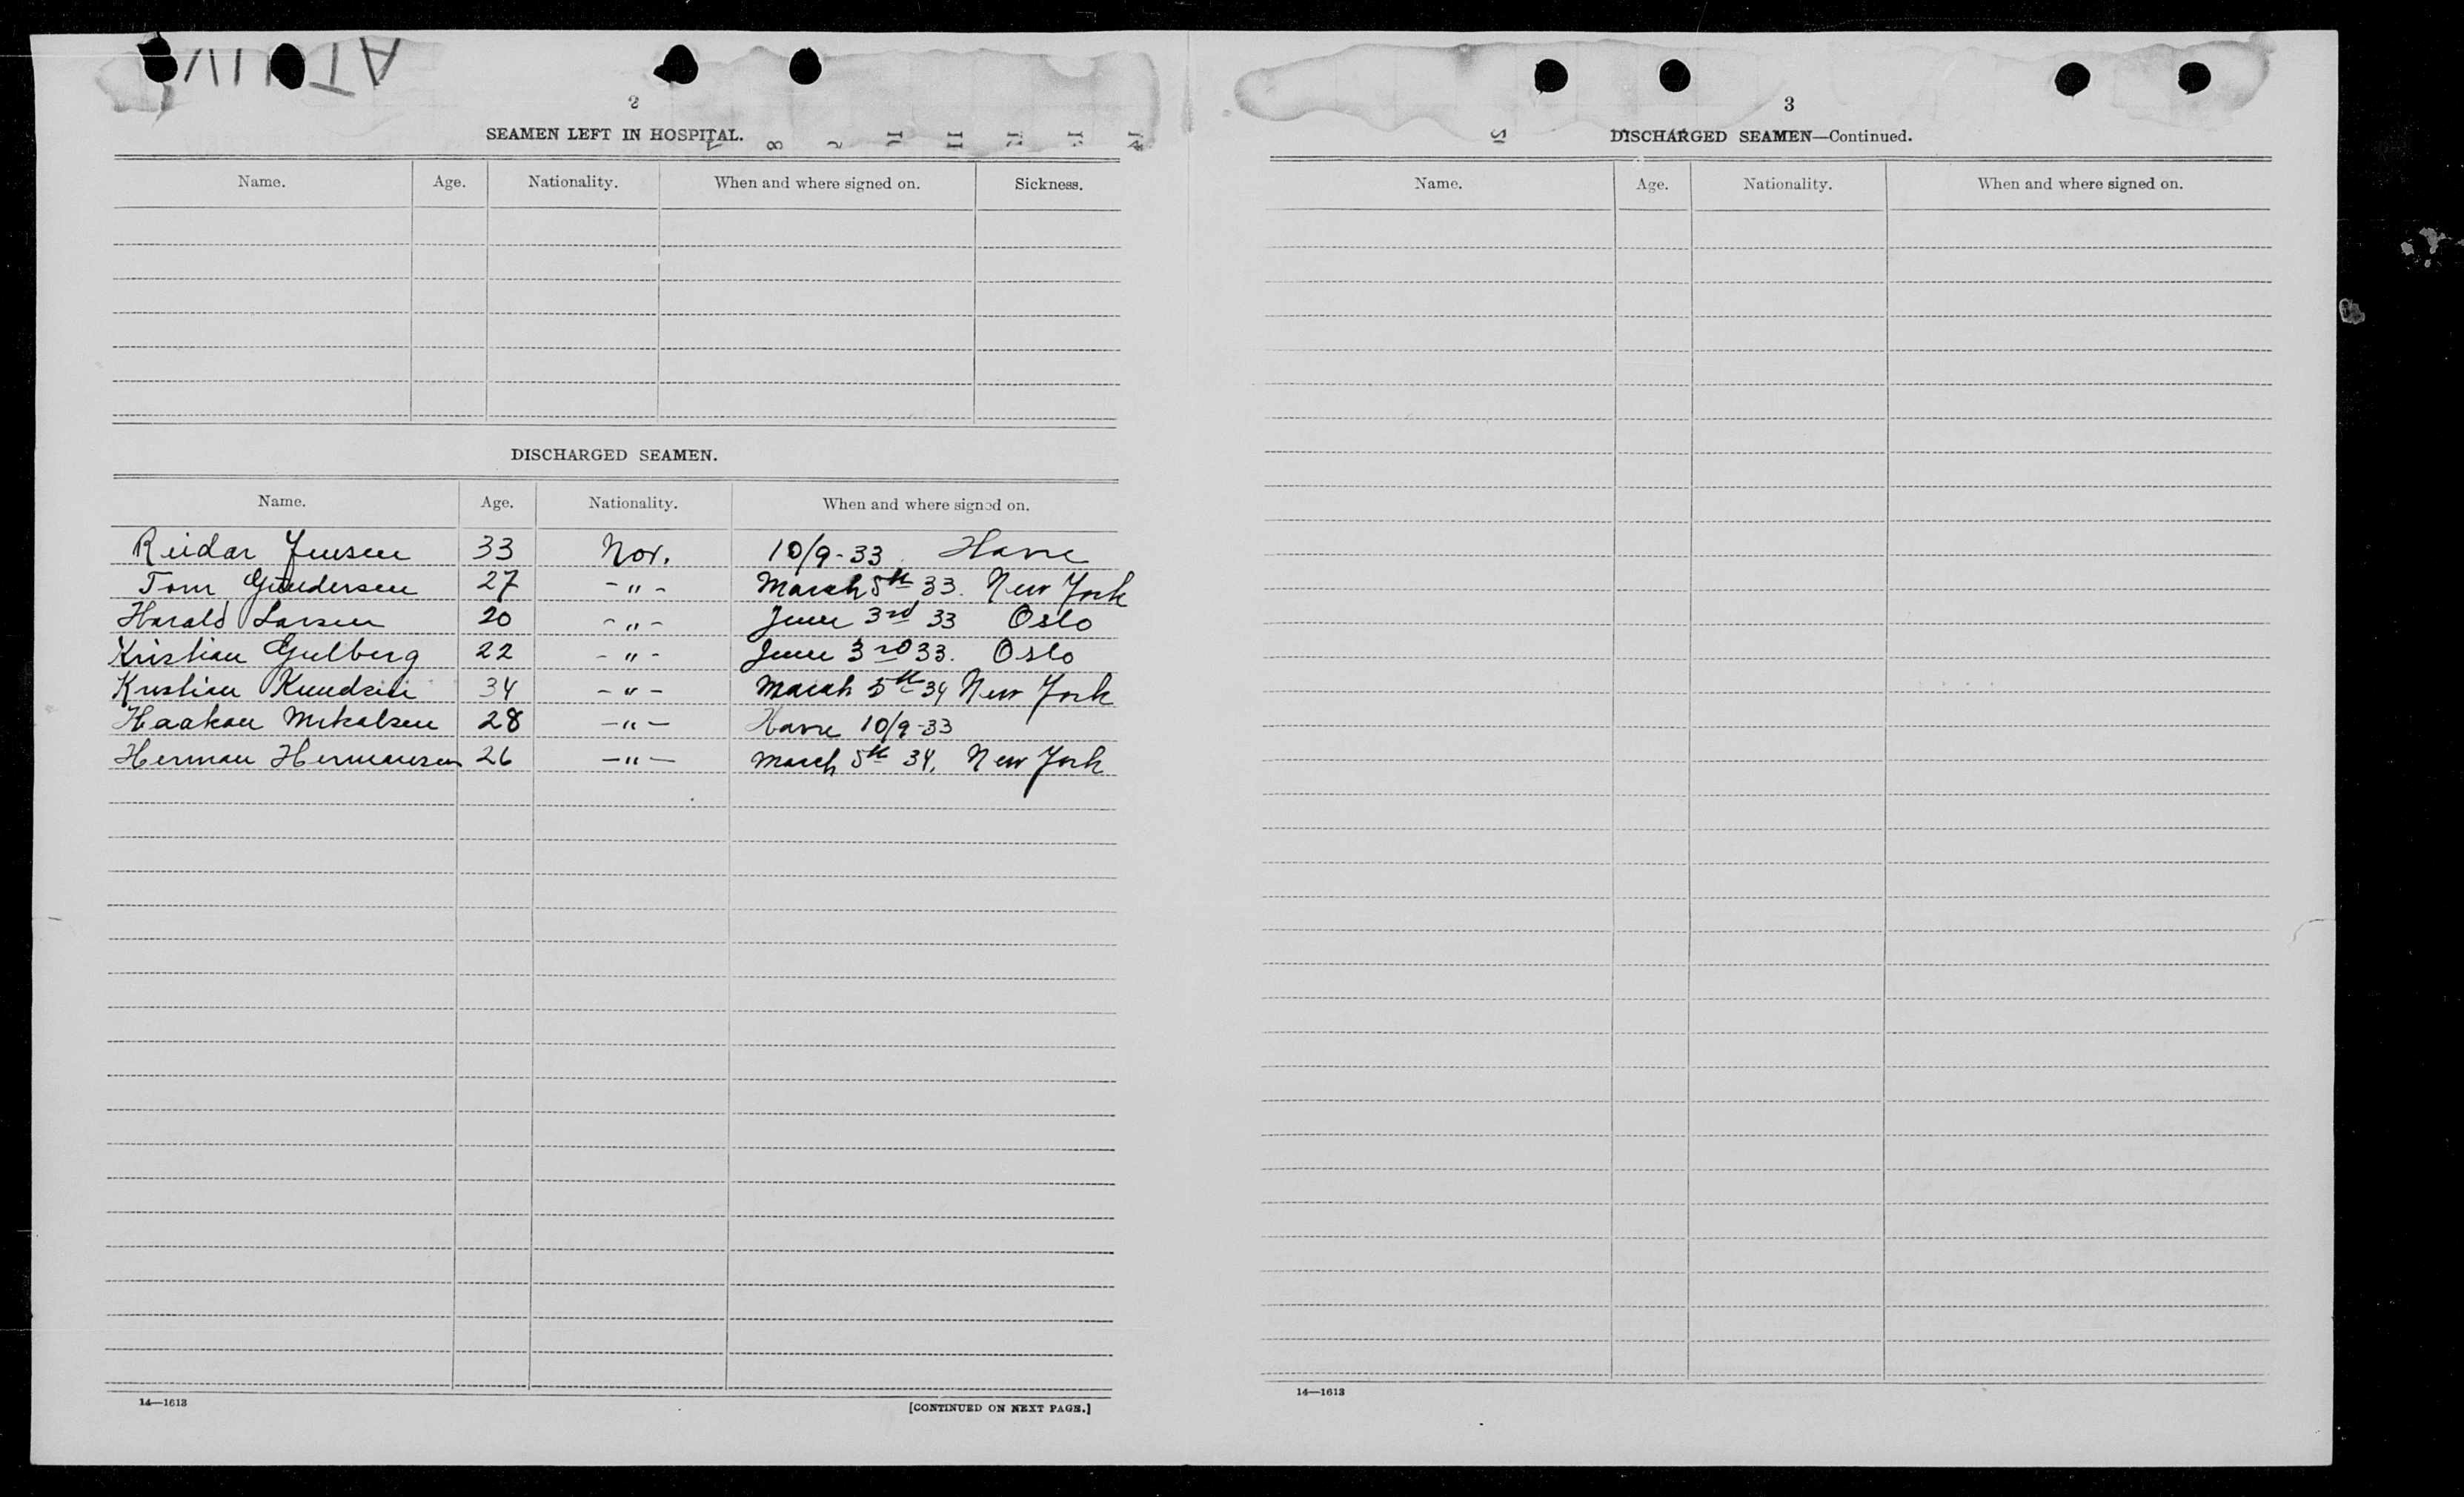 2
SEAMEN LEFT IN HOSPITAL.
Name. Age. Nationality. When and where signed on. Sickness.
DISCHARGED SEAMEN.
Name. Age. Nationality. When and where signed on.
Reidar Jensen 33 Nor. 10/9-33. Havre
Tom Gundersen 27 -"- March 5th 33. New York
Harald Larsen 20 -"- June 3rd 33 Oslo
Kristian Gulberg 22 -"- June 3rd 33. Oslo
Kristian Knudsen 34 -"- March 5th 34 New York
Haakon Mikalsen 28 -"- Havre 10/9-33
Herman Hermansen 26 -"- March 5th 34. New York
14—1613
[CONTINUED ON NEXT PAGE.]
3
DISCHARGED SEAMEN—Continued.
Name. Age. Nationality. When and where signed on.
14—1613